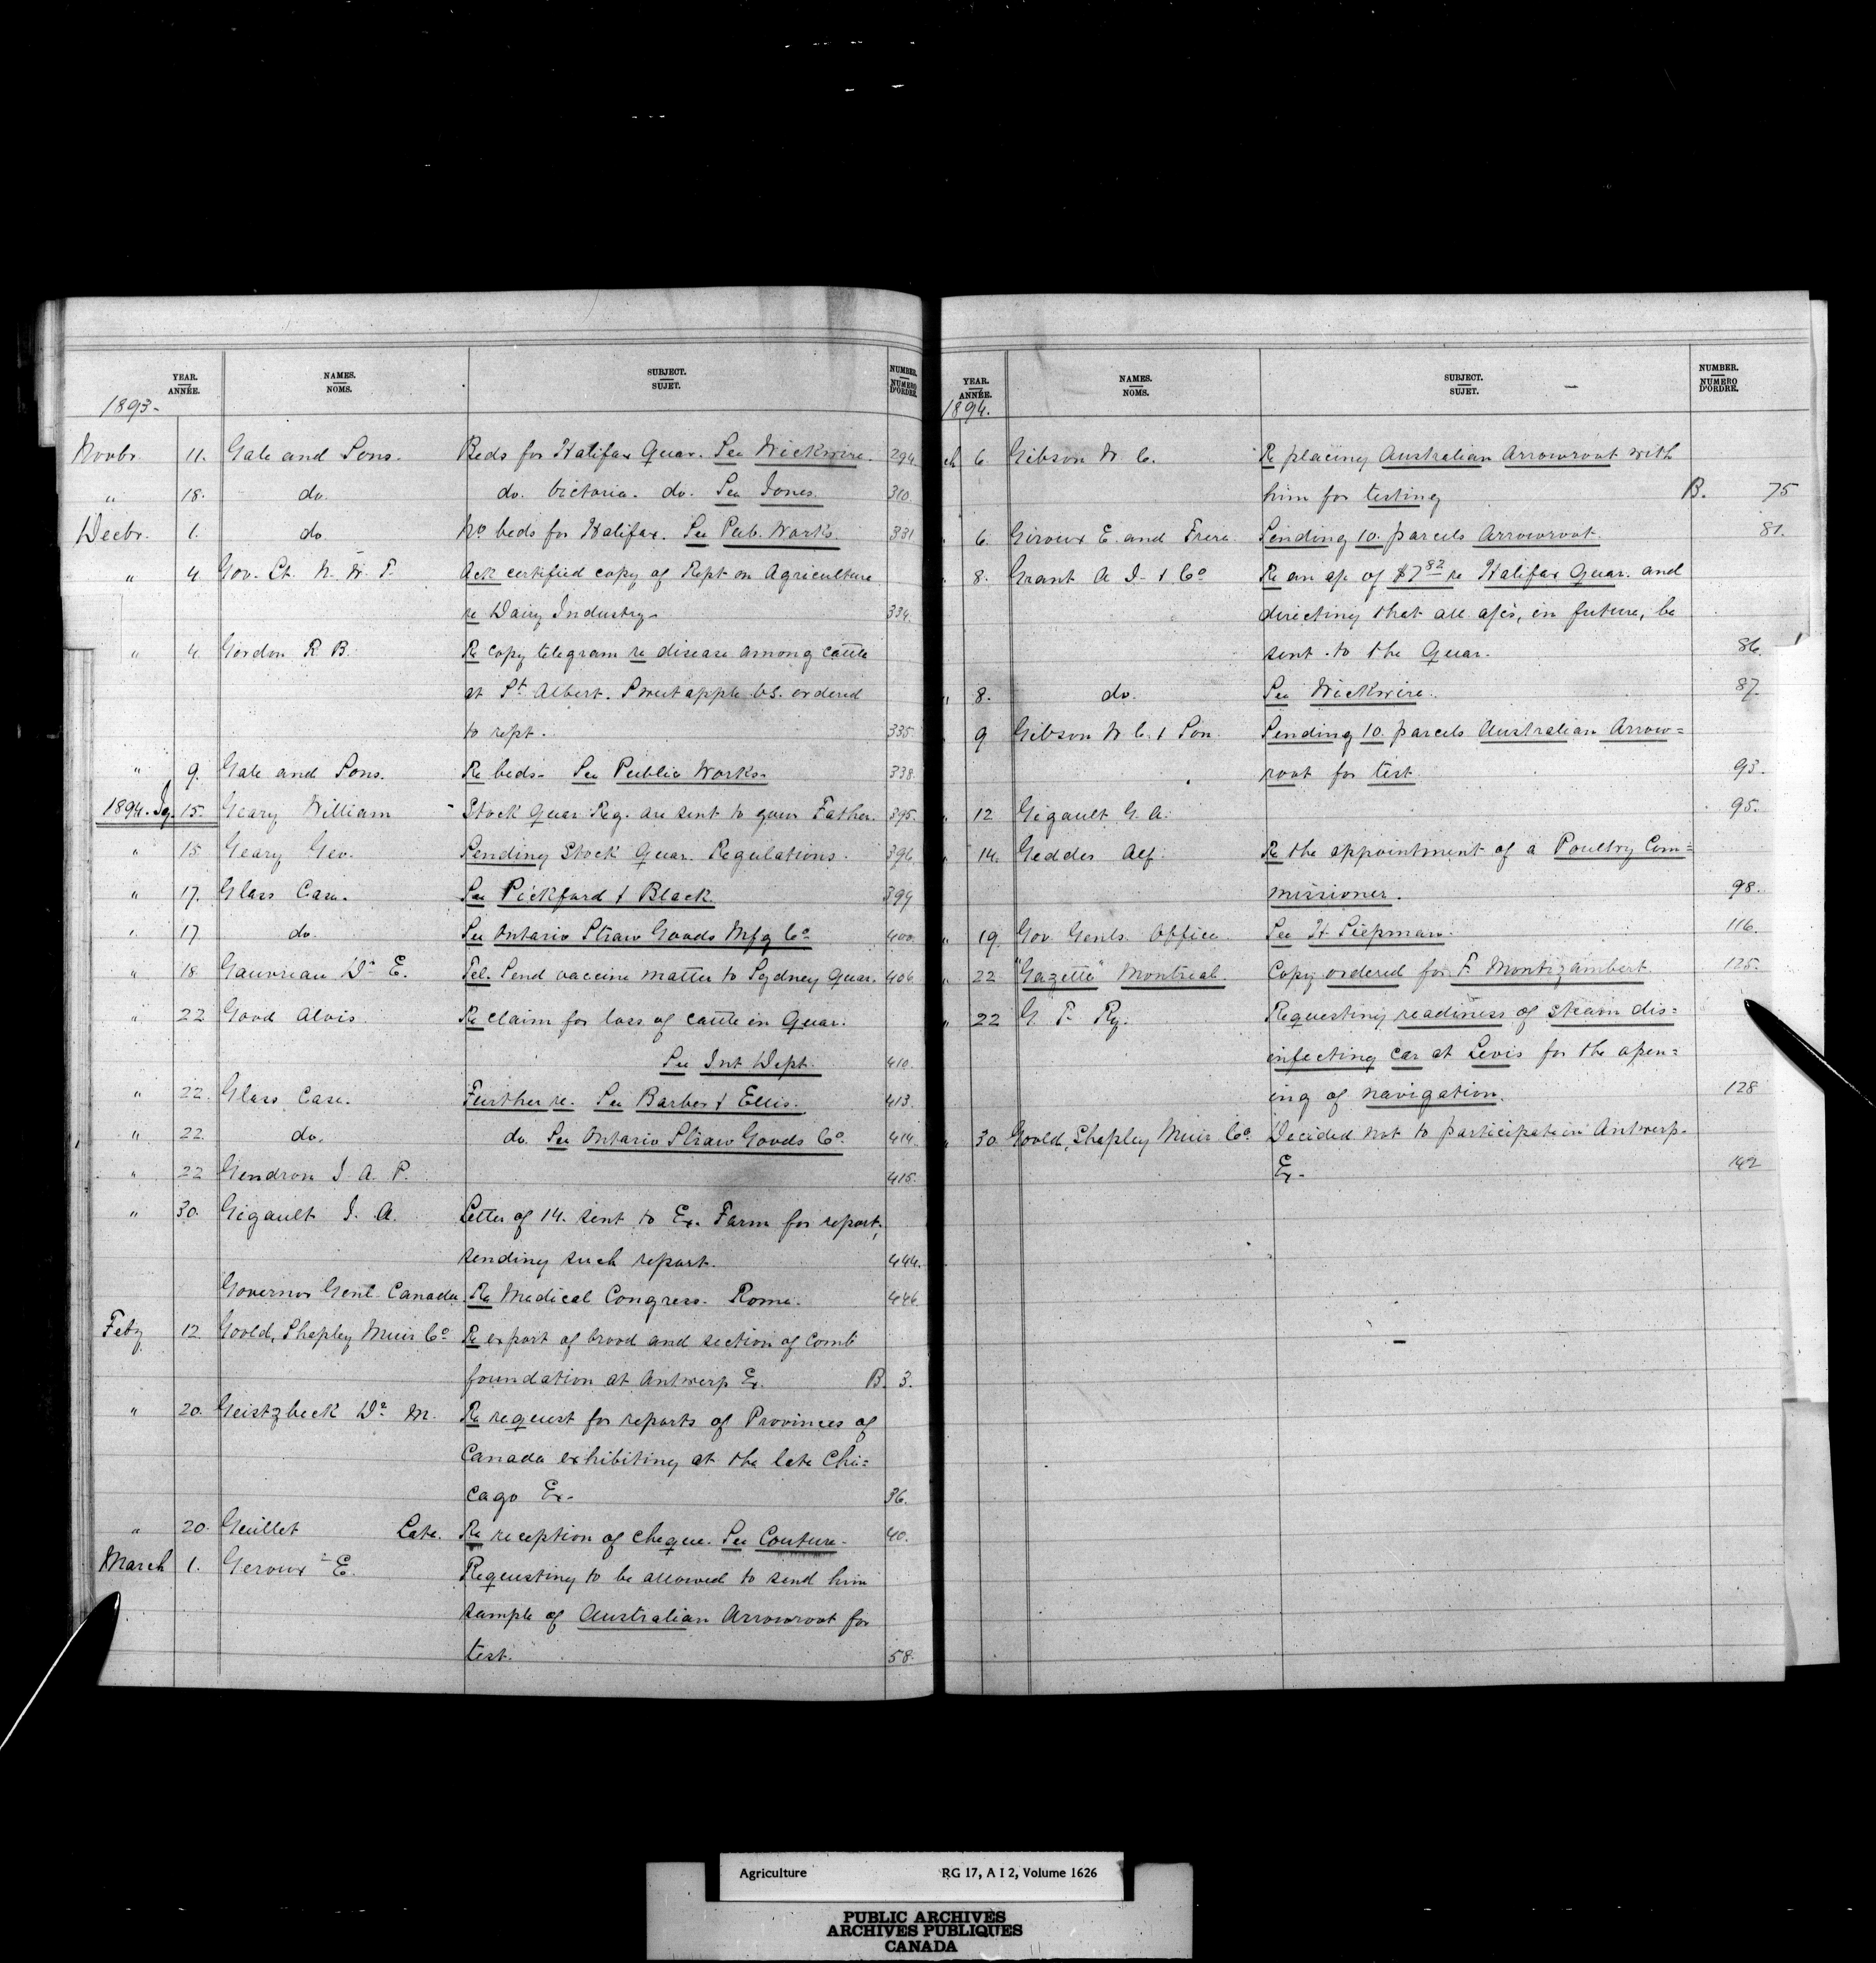 YEAR. ANNÉE. NAMES. NOMS. SUBJECT. SUJET. NUMBER. NUMÉRO D'ORDRE.
1893-
Novbr. 11. Gale and Sons. Beds for Halifax Quar. See Wickwire. 294.
" 18. do. do. Victoria. do. See Jones. 310.
Decbr. 1. do No beds for Halifax. See Pub. Works. 331
" 4 Gov. Lt. N. W. T. Ack certified copy of Rept on Agriculture
re Dairy Industry. 334.
" 4. Gordon R. B. Re copy telegram re disease among cattle
at St. Albert. Sweetapple V.S. ordered
to rept. 335.
" 9. Gale and Sons. Re beds. See Public Works. 338.
1894. Jy. 15. Geary William Stock Quar Reg. are sent to your Father. 395.
" 15 Geary Geo. Sending Stock Quar. Regulations. 396
" 17. Glass Case. See Pickford & Black. 399
" 17 do. See Ontario Straw Goods Mfg Co 400.
" 18 Gauvreau Dr E. Tel. Send vaccine matter to Sydney Quar. 406
" 22 Good Alvis. Re claim for loss of cattle in Quar.
See Int Dept. 410.
" 22. Glass Case. Further re. See Barber & Ellis. 413.
" 22. do. do. See Ontario Straw Goods Co. 414.
" 22 Gendron J. A. P. 415.
" 30. Gigault J. A. Letter of 14. sent to Ex. Farm for report,
sending such report. 444.
Governor Genl. Canada Re Medical Congress. Rome. 446
Feby 12. Goold, Shapley Muir Co Re export of brood and section of comb
foundation at Antwerp Ex. B. 3.
" 20. Geistzbeck Dr. M. Re request for reports of Provinces of
Canada exhibiting at the late Chi=
cago Ex. 36.
" 20. Guillet Late. Re reception of cheque. See Couture. 40.
March 1. Geroux E. Requesting to be allowed to send him
sample of Australian Arrowroot for
test. 58.
YEAR. ANNÉE. NAMES. NOMS. SUBJECT. SUJET. NUMBER. NUMÉRO D'ORDRE.
1894.
ch 6. Gibson W. C. Re placing Australian Arrowroot with
him for testing B. 75
" 6. Giroux E. and Frere. Sending 10. parcels Arrowroot. 81.
" 8. Grant A J. & Co Re an a/c of $7.82 re Halifax Quar. and
directing that all a/cs, in future, be
sent to the Quar. 86.
" 8. do. See Wickwire. 87.
" 9 Gibson W. C. & Son. Sending 10. parcels Australian Arrow=
root for test. 93.
" 12 Gigault G. A. 95.
" 14. Geddes Alf. Re the appointment of a Poultry Com=
missioner. 98.
" 19. Gov. Genls. Office. See H. Siepman. 116.
" 22 "Gazette" Montreal. Copy ordered for F. Montizambert. 125.
" 22 G. T. Ry. Requesting readiness of steam dis=
infecting car at Levis for the open=
ing of navigation. 128
" 30 Goold, Shapley Muir Co. Decided not to participate in Antwerp.
Ex. 142
Agriculture RG 17, A I 2, Volume 1626
PUBLIC ARCHIVES
ARCHIVES PUBLIQUES
CANADA